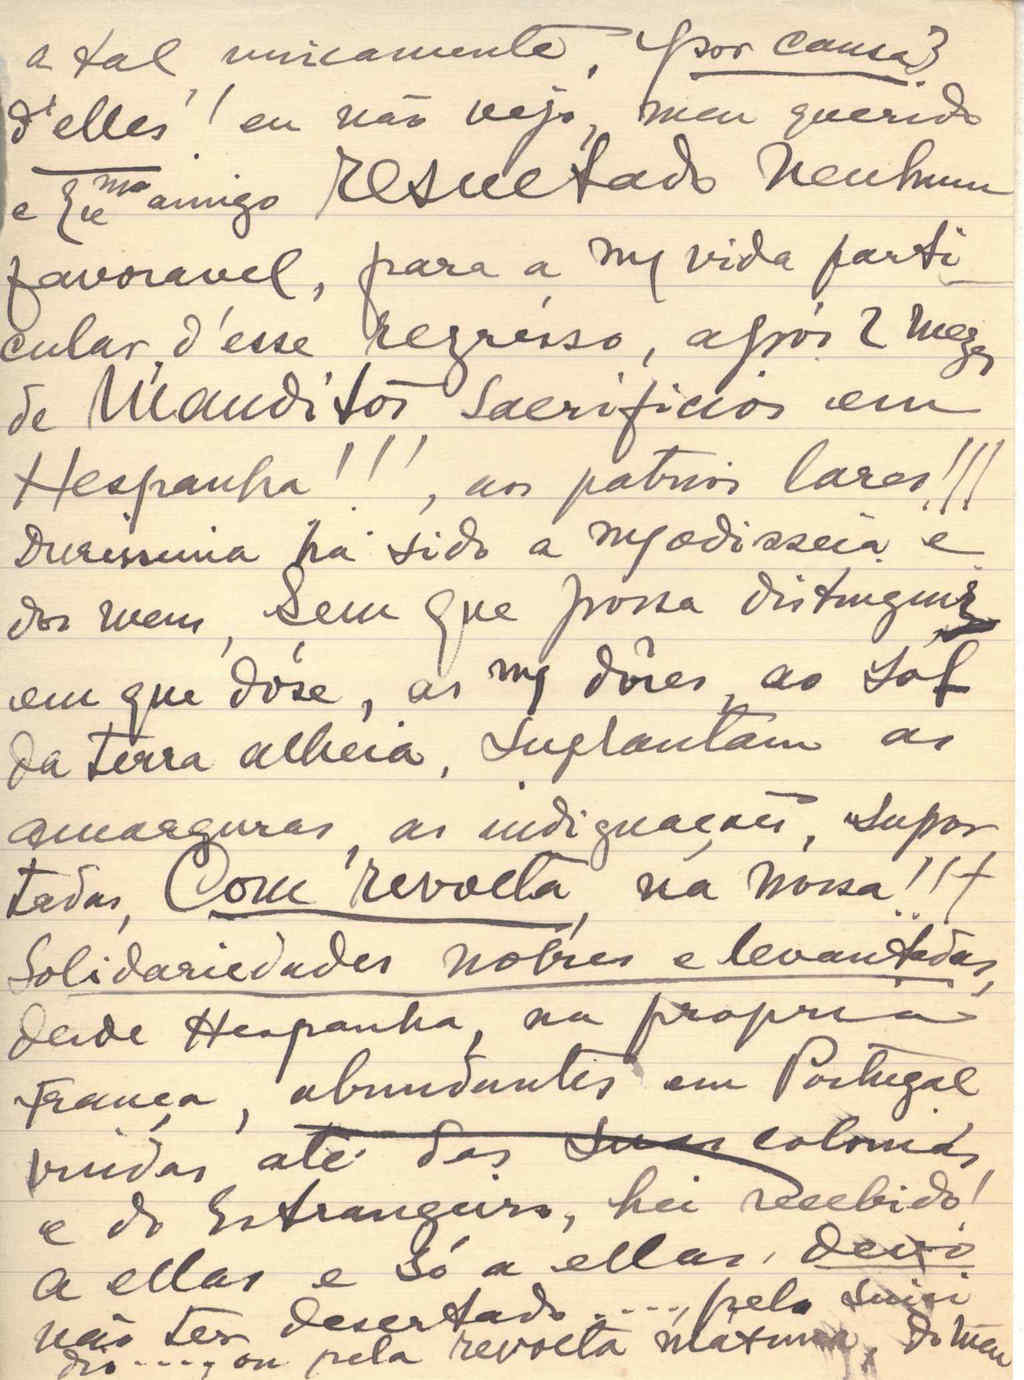 a tal unicamente, (por causa)
d'elles! eu não vejo, meu querido
e Exmo amigo resultado nenhum
favoravel, para a mª vida parti
cular, d'esse regrésso, após 2 mezes
de Mauditos sacrificios em
Hespanha!!!, aos patrios lares!!!
Durissima há sido a mª odisseia e
dos meus, sem que possa distinguir
em que dóse, as mªs dôres, ao sol
da terra alheia, suplantam as
amarguras, as indignações, supor
tadas, Com revolta, na nossa!!!
Solidariedades nobres e levantadas,
desde Hespanha, na propria
França, abundantes em Portugal
vindas até das suas colonias,
e do Estrangeiro, hei recebido!
A ellas e só a ellas, devo
não ter desertado...., pelo suici
dio...., ou pela revolta máxima, do meu